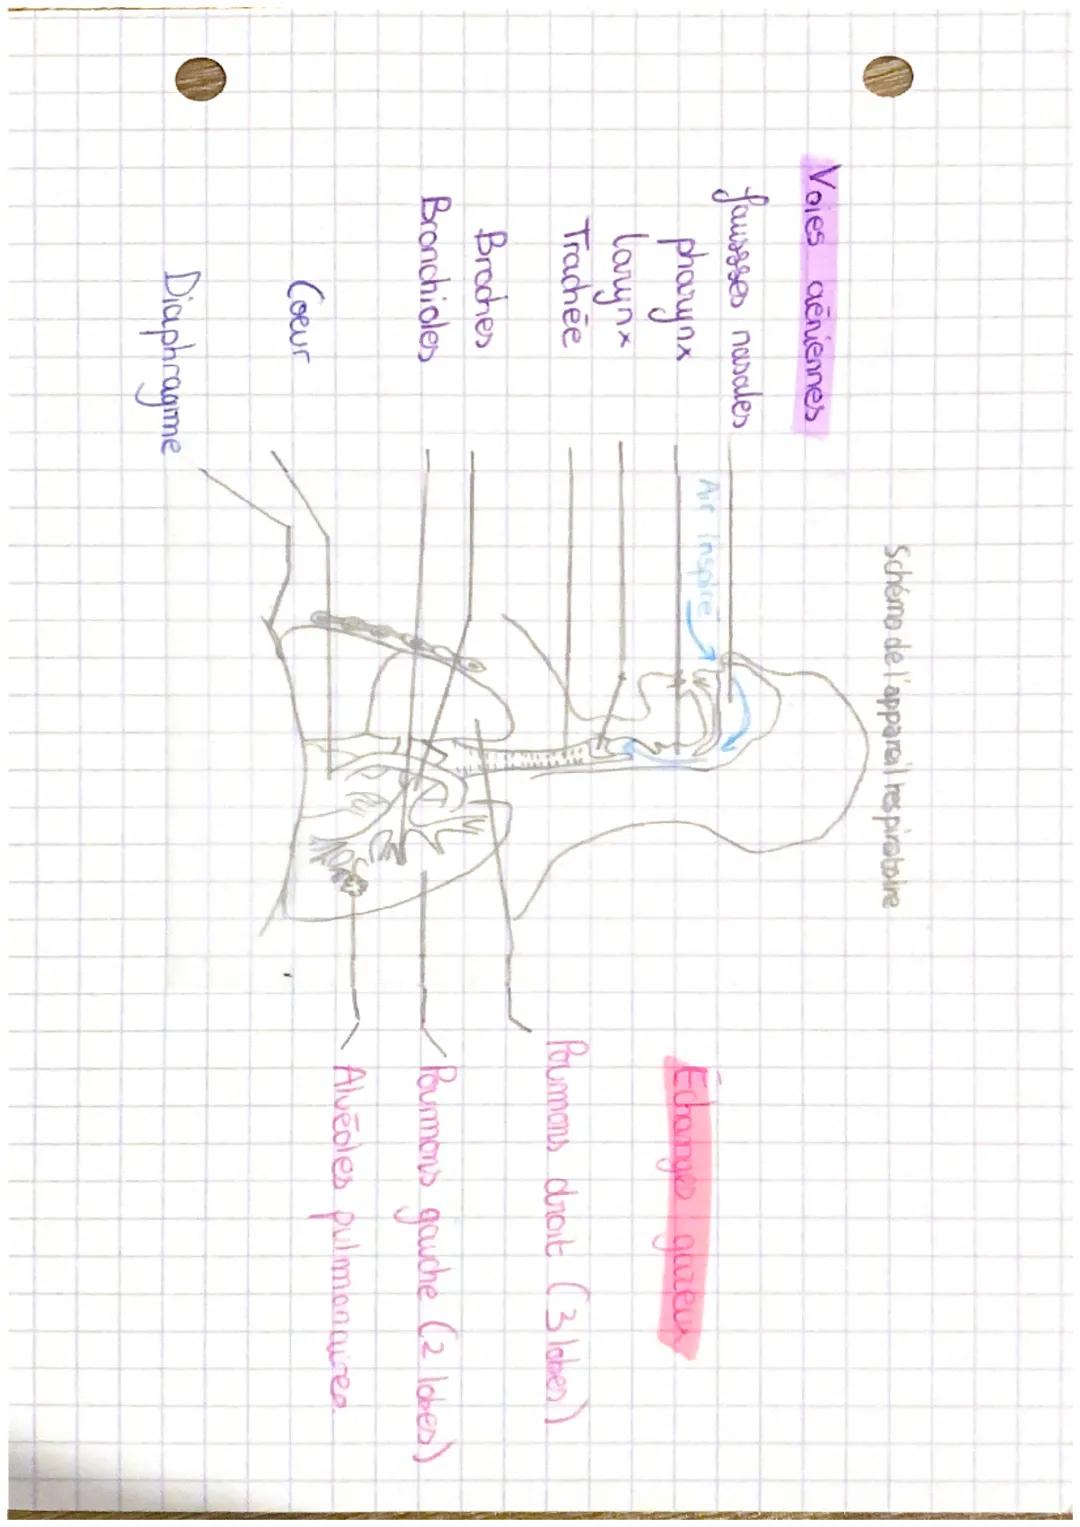 Schéma de l'appareil respiratoire
Voies aériennes
fausses nasales
pharynx
larynx
Trachée
Broches
Bronchioles
Coeur
Diaphragme
Air inspiré
Échanges gazeux
Poumons droit (3 lobes)
Poumons gauche (2 lobes)
Alvéoles pulmonaires.